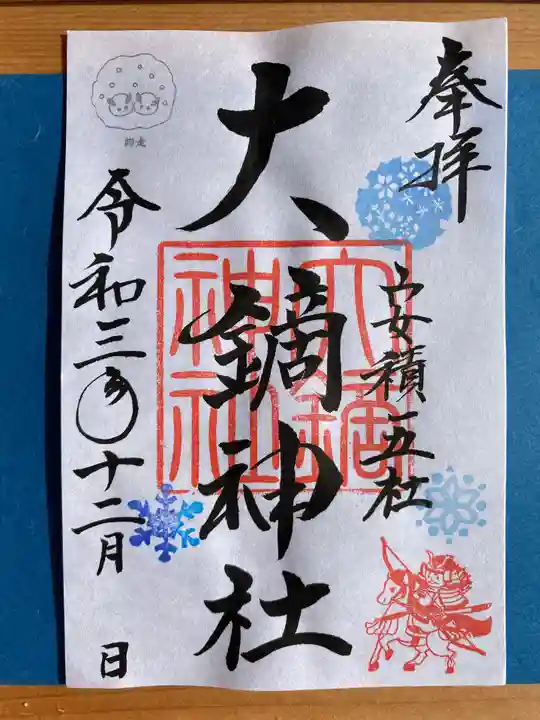 奉拝
安積一五社
大鏑神社
大鏑神社
令和三年十二月 日
師走